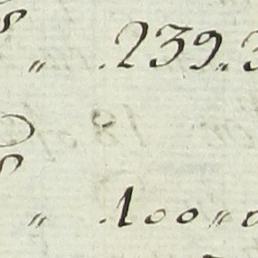 " 239.3
" 100"0